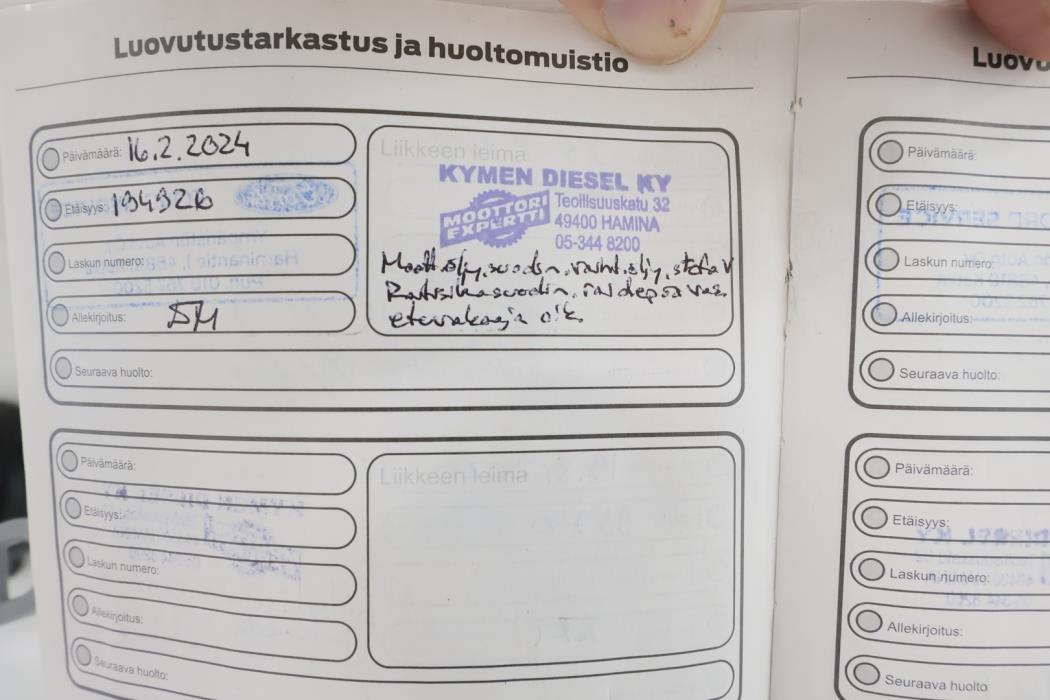 Luovutustarkastus ja huoltomuistio
Päivämäärä: 16.2.2024
Etäisyys: 194926
Laskun numero:
Allekirjoitus:
Seuraava huolto:
Liikkeen leima
KYMEN DIESEL KY
MOOTTORI EXPERTTI
Teollisuuskatu 32
49400 HAMINA
05-344 8200
Moott.öljy, suodin, vaiht.öljy,
Raitisilmasuodin,
etuvakaaja oik.
Päivämäärä:
Etäisyys:
Laskun numero:
Allekirjoitus:
Seuraava huolto:
Liikkeen leima
Luovu
Päivämäärä:
Etäisyys:
Laskun numero:
Allekirjoitus:
Seuraava huolto:
Päivämäärä:
Etäisyys:
Laskun numero:
Allekirjoitus:
Seuraava huolto: